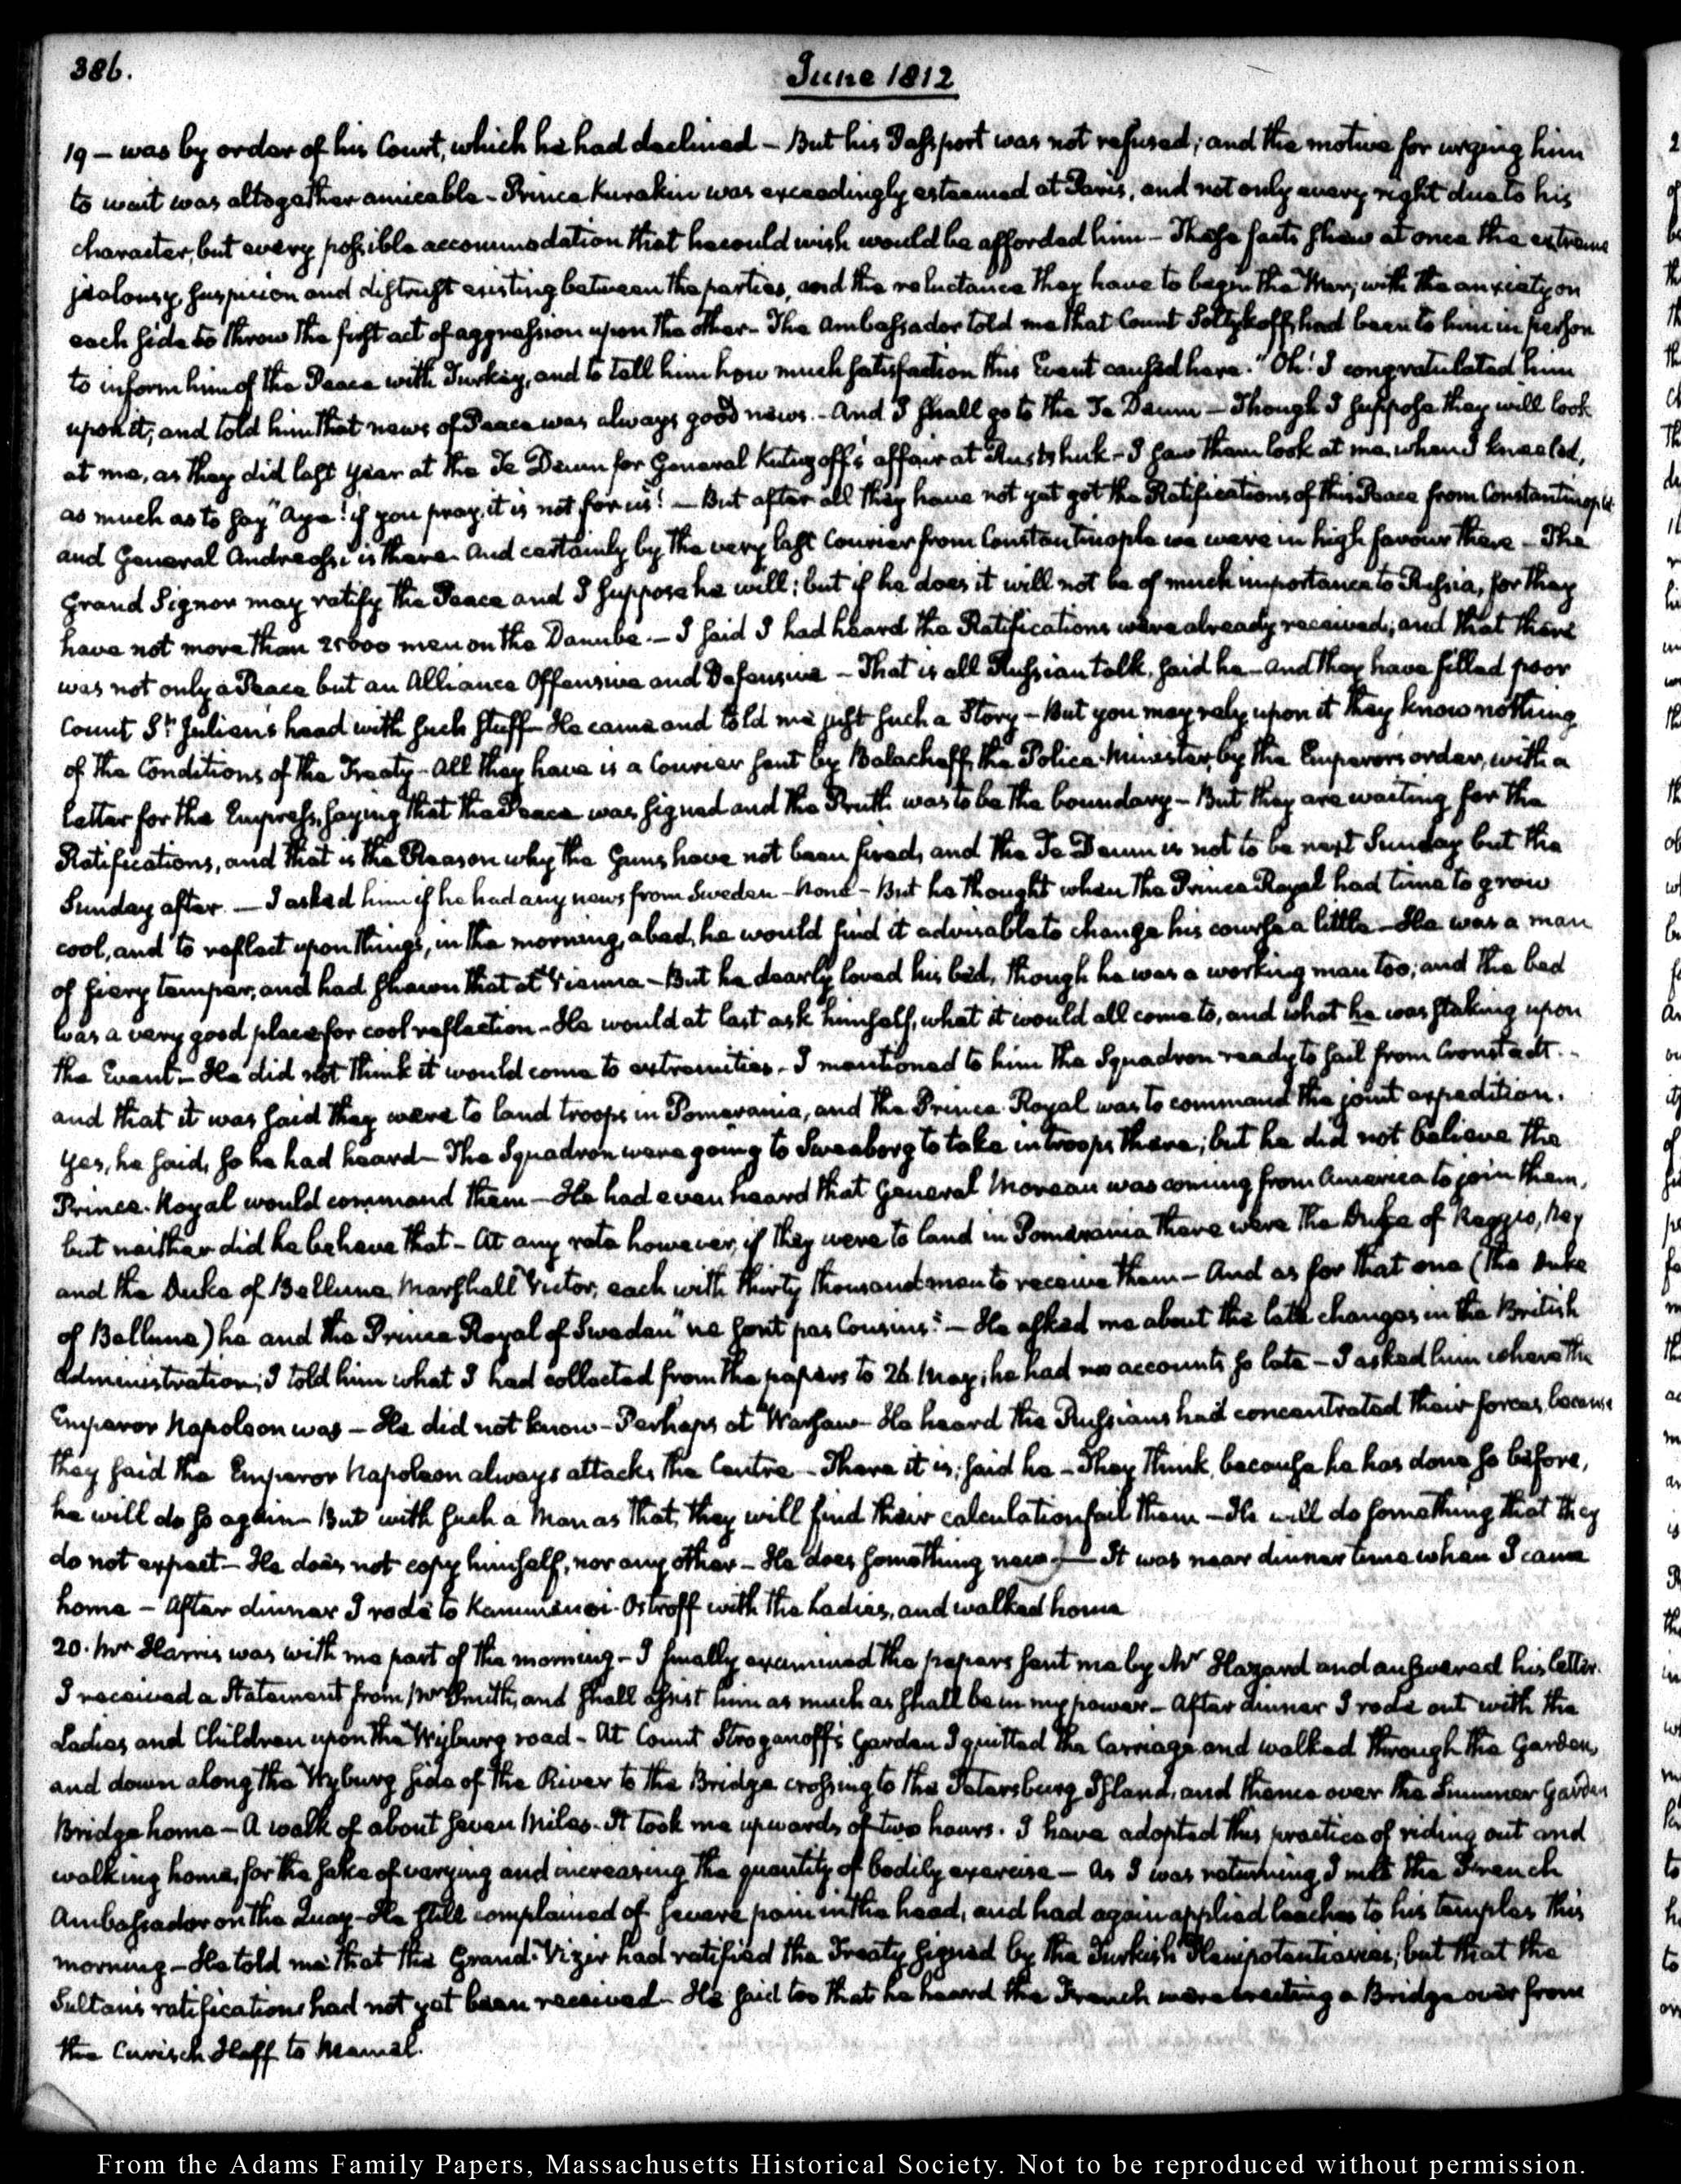 386.
June 1812
19 – was by order of his Court, which he had declined – But his Passport was not refused; and the motive for urging him
to wait was altogether amicable – Prince Kurakin was exceedingly esteemed at Paris, and not only every right due to his
character, but every possible accommodation that he could wish would be afforded him – These facts shew at once the extreme
jealousy, suspicion and distrust existing between the parties, and the reluctance they have to begin the War; with the anxiety on
each side to throw the first act of aggression upon the other – The Ambassador told me that Count Soltykoff, had been to him in person
to inform him of the Peace with Turkey, and to tell him how much satisfaction this Event caused here. "Oh! I congratulated him
upon it; and told him that news of Peace was always good news. – And I shall go to the Te Deum – Though I suppose they will look
at me, as they did last year at the Te Deum for General Kutuzoff's affair at Rustshuk – I saw them look at me, when I kneeled,
as much as to say "Aye! if you pray, it is not for us! – But after all they have not yet got the Ratifications of this Peace from Constantinople
and General Andreossi is there – And certainly by the very last Courier from Constantinople we were in high favour there – The
Grand Signor may ratify the Peace and I suppose he will; but if he does it will not be of much importance to Russia, for they
have not more than 25000 men on the Danube. – I said I had heard the Ratifications were already received; and that there
was not only a Peace but an Alliance Offensive and Defensive – That is all Russian talk, said he – and they have filled poor
Count St. Julien's head with such stuff – He came and told me just such a Story – But you may rely upon it they know nothing
of the Conditions of the Treaty – All they have is a Courier sent by Balacheff, the Police-Minister, by the Emperor's order, with a
letter for the Empress, saying that the Peace was signed and the Pruth was to be the boundary – But they are waiting for the
Ratifications, and that is the Reason why the Guns have not been fired, and the Te Deum is not to be next Sunday but the
Sunday after. – I asked him if he had any news from Sweden – None – But he thought when the Prince Royal had time to grow
cool, and to reflect upon things, in the morning, abed, he would find it advisable to change his course a little – He was a man
of fiery temper; and had shewn that at Vienna – But he dearly loved his bed, though he was a working man too; and the bed
was a very good place for cool reflection – He would at last ask himself, what it would all come to, and what he was staking upon
the Event – He did not think it would come to extremities – I mentioned to him the Squadron ready to sail from Cronstadt. –
and that it was said they were to land troops in Pomerania, and the Prince Royal was to command the joint expedition.
Yes, he said, so he had heard – The Squadron were going to Sweaborg to take in troops there; but he did not believe the
Prince-Royal would command them – He had even heard that General Moreau was coming from America to join them,
but neither did he believe that – At any rate however, if they were to land in Pomerania there were the Duke of Reggio, Ney
and the Duke of Belluna, Marshall Victor, each with thirty thousand men to receive them – And as for that one (the Duke
of Belluna) he and the Prince Royal of Sweden "ne sont pas Cousins." – He asked me about the late changes in the British
Administration; I told him what I had collected from the papers to 26. May; he had no accounts so late – I asked him where the
Emperor Napoleon was – He did not know – Perhaps at Warsaw – He heard the Russians had concentrated their forces, because
they said the Emperor Napoleon always attacks the Centre – There it is; said he – They think, because he has done so before,
he will do so again – But with such a Man as that, they will find their calculation fail them – He will do something that they
do not expect – He does not copy himself, nor any other – He does something new – It was near dinner time when I came
home – After dinner I rode to Kammenoi-Ostroff with the Ladies, and walked home
20. Mr Harris was with me part of the morning – I finally examined the papers sent me by Mr Hazard and answered his letter.
I received a Statement from Mr Smith, and shall assist him as much as shall be in my power – After dinner I rode out with the
Ladies and Children upon the Wyburg road – At Count Stroganoff's Garden I quitted the Carriage and walked through the Garden,
and down along the Wyburg side of the River to the Bridge crossing to the Petersburg Island, and thence over the Summer Garden
Bridge home – A walk of about seven Miles – It took me upwards of two hours. I have adopted this practice of riding out and
walking home, for the sake of varying and increasing the quantity of bodily exercise – As I was returning, I met the French
Ambassador on the Quay – He still complained of severe pain in the head, and had again applied leaches to his temples this
morning – He told me that the Grand-Vizir had ratified the Treaty signed by the Turkish Plenipotentiaries; but that the
Sultan's ratifications had not yet been received – He said too that he heard the French were erecting a Bridge over from
the Curisch Haff to Memel.
From the Adams Family Papers, Massachusetts Historical Society. Not to be reproduced without permission.